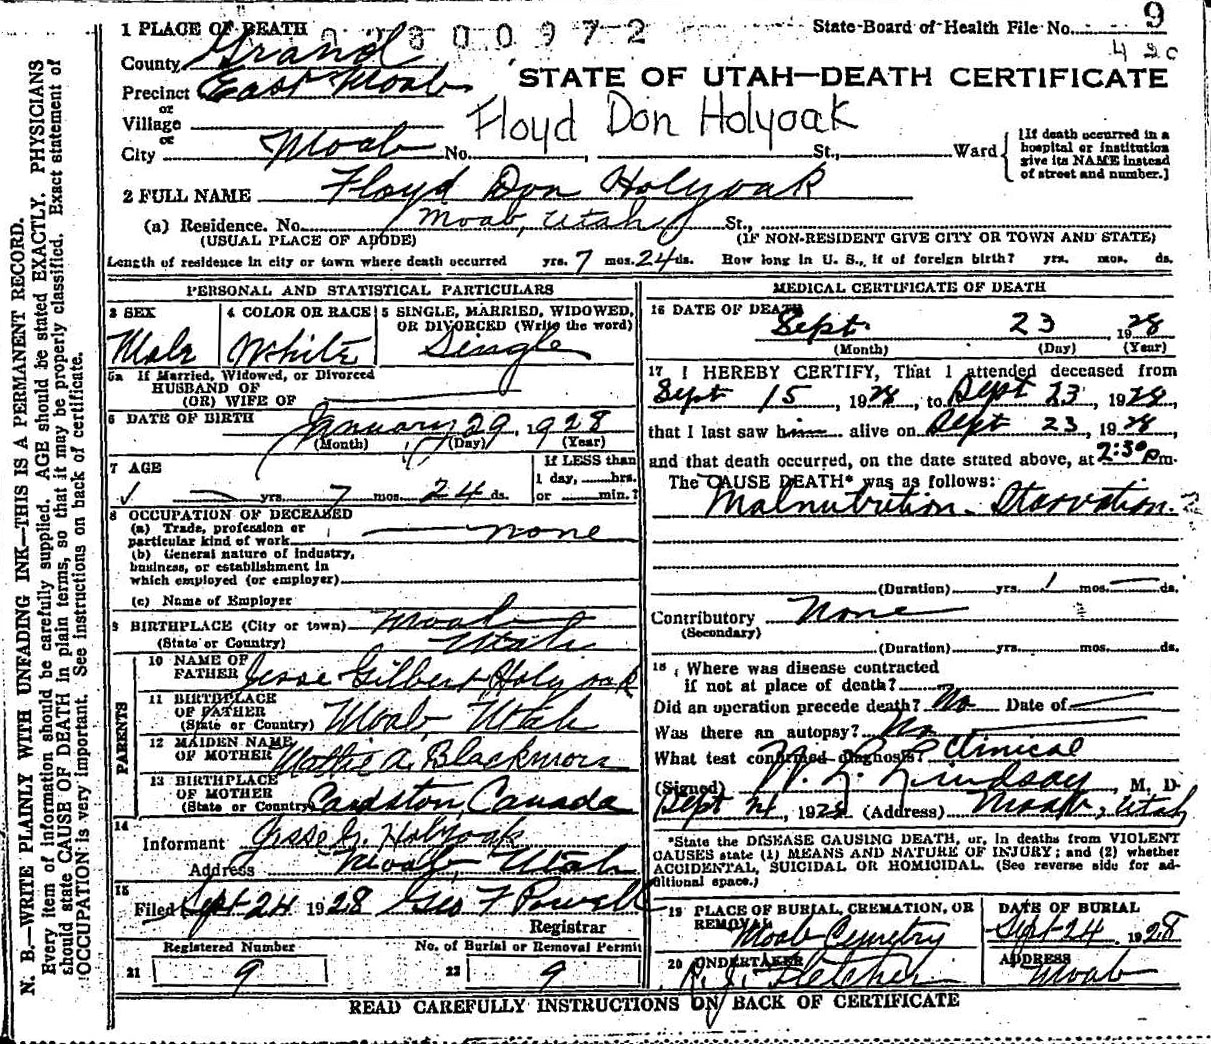 1 PLACE OF DEATH 0 2 3 0 0 9 7 2 State Board of Health File No. 9
County Grand
Precinct East Moab
STATE OF UTAH—DEATH CERTIFICATE
or
Village
Floyd Don Holyoak
or
City Moab No. , St., Ward
[If death occurred in a
hospital or institution
give its NAME instead
of street and number.]
2 FULL NAME Floyd Don Holyoak
(a) Residence. No. Moab, Utah St.,
(USUAL PLACE OF ABODE) (IF NON-RESIDENT GIVE CITY OR TOWN AND STATE)
Length of residence in city or town where death occurred yrs. 7 mos. 24 ds. How long in U. S., if of foreign birth? yrs. mos. ds.
PERSONAL AND STATISTICAL PARTICULARS
3 SEX
Male
4 COLOR OR RACE
White
5 SINGLE, MARRIED, WIDOWED,
OR DIVORCED (Write the word)
Single
5a If Married, Widowed, or Divorced
HUSBAND OF
(OR) WIFE OF
6 DATE OF BIRTH January 29, 1928
(Month) (Day) (Year)
7 AGE
yrs. 7 mos. 24 ds.
If LESS than
1 day, hrs.
or min.?
8 OCCUPATION OF DECEASED
(a) Trade, profession or
particular kind of work none
(b) General nature of industry,
business, or establishment in
which employed (or employer)
(c) Name of Employer
9 BIRTHPLACE (City or town) Moab
(State or Country) Utah
PARENTS
10 NAME OF
FATHER Jesse Gilbert Holyoak
11 BIRTHPLACE
OF FATHER
(State or Country) Moab, Utah
12 MAIDEN NAME
OF MOTHER Mollie A. Blackmore
13 BIRTHPLACE
OF MOTHER
(State or Country) Cardston, Canada
14
Informant Jesse G. Holyoak
Address Moab, Utah
15
Filed Sept 24 1928 Geo F Powell
Registrar
Registered Number No. of Burial or Removal Permit
21 9 22 9
MEDICAL CERTIFICATE OF DEATH
16 DATE OF DEATH
Sept. 23, 1928
(Month) (Day) (Year)
17 I HEREBY CERTIFY, That I attended deceased from
Sept 15, 1928, to Sept 23, 1928,
that I last saw him alive on Sept 23, 1928,
and that death occurred, on the date stated above, at 2:30 pm.
The CAUSE DEATH* was as follows:
Malnutrition - Starvation.
(Duration) yrs. 1 mos. ds.
Contributory None
(Secondary)
(Duration) yrs. mos. ds.
18 Where was disease contracted
if not at place of death?
Did an operation precede death? No Date of
Was there an autopsy? No
What test confirmed diagnosis? Clinical
(Signed) Lindsay, M. D.
Sept 24, 1928 (Address) Moab, Utah
*State the DISEASE CAUSING DEATH, or, in deaths from VIOLENT
CAUSES state (1) MEANS AND NATURE OF INJURY; and (2) whether
ACCIDENTAL, SUICIDAL OR HOMICIDAL. (See reverse side for ad-
ditional space.)
19 PLACE OF BURIAL, CREMATION, OR
REMOVAL
Moab Cemetry
DATE OF BURIAL
Sept 24, 1928
20 UNDERTAKER
R. J. Fletcher
ADDRESS
Moab
READ CAREFULLY INSTRUCTIONS ON BACK OF CERTIFICATE
N. B.—WRITE PLAINLY WITH UNFADING INK—THIS IS A PERMANENT RECORD.
Every item of information should be carefully supplied. AGE should be stated EXACTLY. PHYSICIANS
should state CAUSE OF DEATH in plain terms, so that it may be properly classified. Exact statement of
OCCUPATION is very important. See instructions on back of certificate.